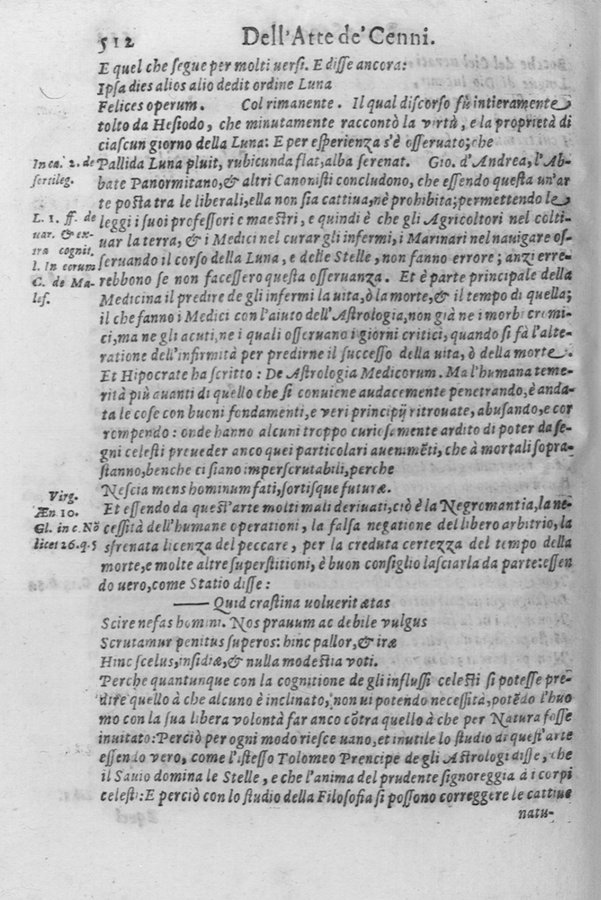 512 Dell'Arte de' Cenni.
E quel che segue per molti versi. E disse ancora:
Ipsa dies alios alio dedit ordine Luna
Felices operum. Col rimanente. Il qual discorso fù intieramente
tolto da Hesiodo, che minutamente raccontò la virtù, e la proprietà di
ciascun giorno della Luna: E per esperienza s'è osseruato; che
In ca. 2. de
sortileg.
Pallida Luna pluit, rubicunda flat, alba serenat. Gio. d'Andrea, l'Ab-
bate Panormitano, & altri Canonisti concludono, che essendo questa un'ar
te posta tra le liberali, ella non sia cattiua, nè prohibita; permettendo le
L. 1. ff. de
uar. & ex-
tra cognit.
l. In eorum
C. de Ma-
lef.
leggi i suoi professori e maestri, e quindi è che gli Agricoltori nel colti-
uar la terra, & i Medici nel curar gli infermi, i Marinari nel nauigare os-
seruando il corso della Luna, e delle Stelle, non fanno errore; anzi erre-
rebbono se non facessero questa osseruanza. Et è parte principale della
Medicina il predire de gli infermi la uita, ò la morte, & il tempo di quella;
il che fanno i Medici con l'aiuto dell'Astrologia, non già ne i morbi croni-
ci, ma ne gli acuti, ne i quali osseruano i giorni critici, quando si fà l'alte-
ratione dell'infirmità per predirne il successo della uita, ò della morte.
Et Hipocrate ha scritto: De Astrologia Medicorum. Ma l'humana teme-
rità più auanti di quello che si conuiene audacemente penetrando, è anda-
ta le cose con buoni fondamenti, e veri principij ritrouate, abusando, e cor
rompendo: onde hanno alcuni troppo curiosamente ardito di poter da se-
gni celesti preueder anco quei particolari auenimēti, che à mortali sopra-
stanno, benche ci siano imperscrutabili, perche
Virg.
Æn 10.
Nescia mens hominum fati, sortisque futuræ.
Gl. in c. Nō
licet 26. q. 5
Et essendo da quest'arte molti mali deriuati, ciò è la Negromantia, la ne-
cessità dell'humane operationi, la falsa negatione del libero arbitrio, la
sfrenata licenza del peccare, per la creduta certezza del tempo della
morte, e molte altre superstitioni, è buon consiglio lasciarla da parte: essen
do uero, come Statio disse:
—— Quid crastina volueritætas
Scire nefas homini. Nos prauum ac debile vulgus
Scrutamur penitus superos: hinc pallor, & iræ
Hinc scelus, insidiæ, & nulla modestia voti.
Perche quantunque con la cognitione de gli influssi celesti si potesse pre-
dire quello à che alcuno è inclinato, non ui potendo necessità, potēdo l'huo
mo con la sua libera volontà far anco cōtra quello à che per Natura fosse
inuitato: Perciò per ogni modo riesce uano, et inutile lo studio di quest'arte
essendo vero, come l'istesso Tolomeo Prencipe de gli Astrologi disse, che
il Sauio domina le Stelle, e che l'anima del prudente signoreggia à i corpi
celesti: E perciò con lo studio della Filosofia si possono correggere le cattiue
natu-